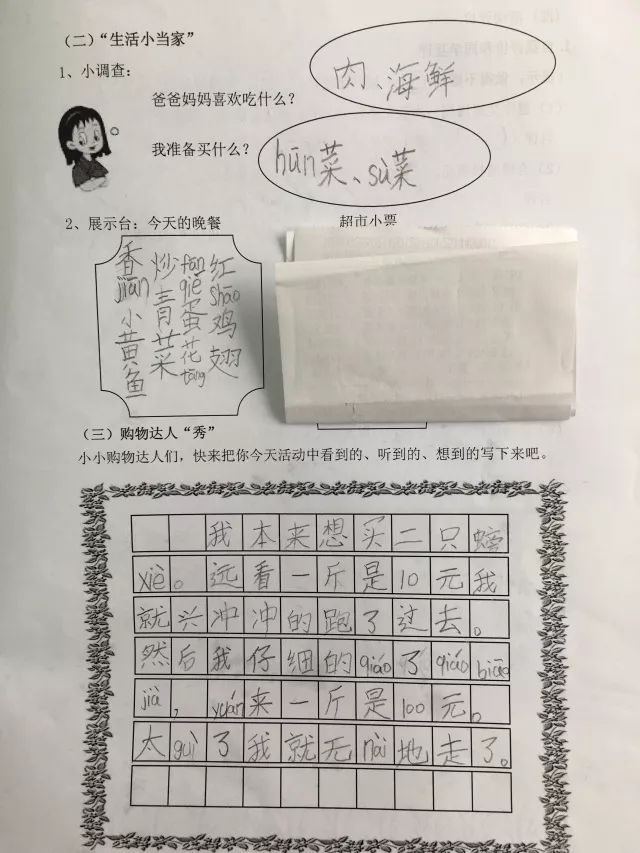 （二）“生活小当家”
1、小调查：
爸爸妈妈喜欢吃什么？
肉、海鲜
我准备买什么？
hūn菜、sù菜
2、展示台：今天的晚餐
超市小票
香jiān小黄鱼
炒青菜
fān qié蛋花tāng
红shāo鸡翅
（三）购物达人“秀”
小小购物达人们，快来把你今天活动中看到的、听到的、想到的写下来吧。
我本来想买二只螃
xiè。远看一斤是10元我
就兴冲冲的跑了过去。
然后我仔细的qiáo了qiáo biāo
jià，yuán来一斤是100元。
太guì了我就无nài地走了。